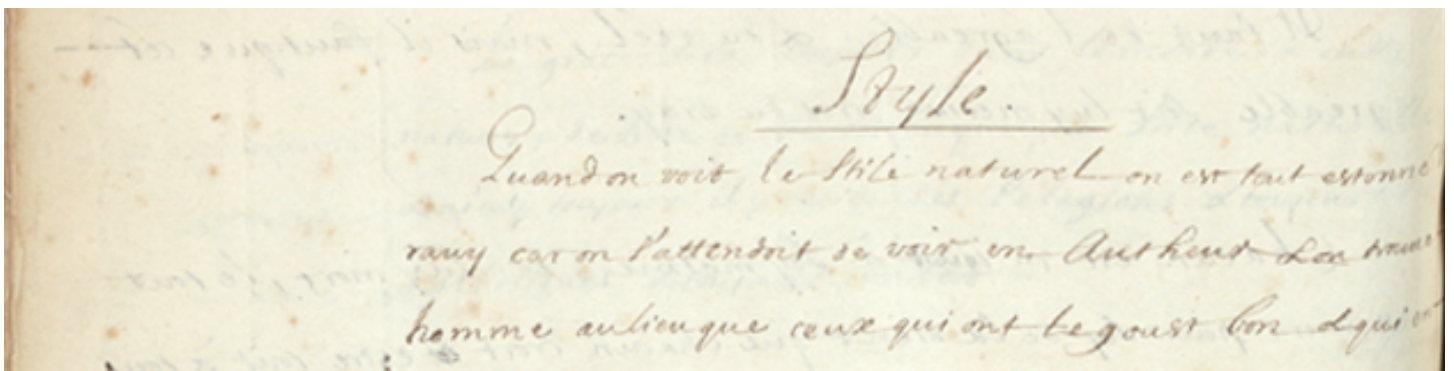 Style.
Quand on voit le stile naturel on est tout estonné
ravy car on s'attendoit de voir un Autheur & on trouue
homme au lieu que ceux qui ont le goust bon & qui en